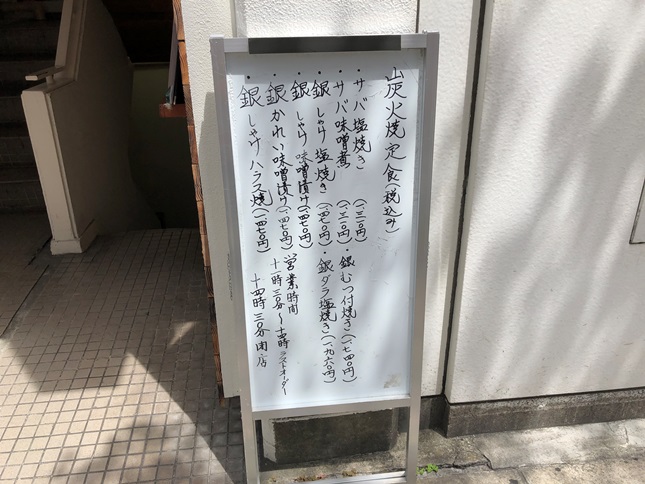 炭火焼定食(税込み)
・サバ塩焼き(一、三一〇円)
・サバ味噌煮(一、三一〇円)
・銀しゃけ塩焼き(一、四七〇円)
・銀しゃけ味噌漬け(一、四七〇円)
・銀かれい味噌漬け(一、四七〇円)
・銀しゃけハラス焼(一、四七〇円)
・銀むつ付焼き(一、七四〇円)
・銀ダラ塩焼き(一、九六〇円)
営業時間
十一時三〇分～十四時ラストオーダー
十四時三〇分閉店